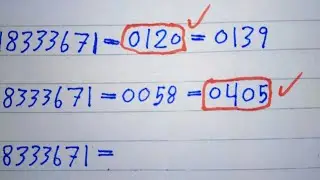 18333671 = 0120 = 0139
8333671 = 0058 = 0405
8333671 =